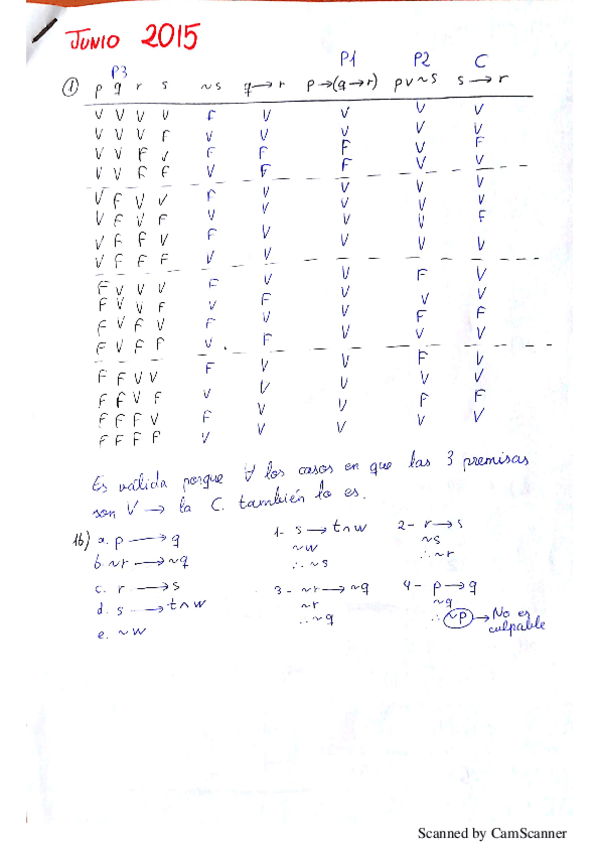 JUNIO 2015
P3 P1 P2 C
① p q r s ~s q→r p→(q→r) p∨~s s→r
V V V V F V V V V
V V V F V V V V V
V V F V F F F V F
V V F F V F F V V
V F V V F V V V V
V F V F V V V V V
V F F V F V V V F
V F F F V V V V V
F V V V F V V F V
F V V F V F V V V
F V F V F V V F F
F V F F V F V V V
F F V V F V V F V
F F V F V V V V V
F F F V F V V F F
F F F F V V V V V
Es válida porque ∀ los casos en que las 3 premisas
son V → la C. también lo es.
1b) a. p → q
b. ~r → ~q
c. r → s
d. s → t∧w
e. ~w
1- s → t∧w
~w
∴ ~s
2- r → s
~s
∴ ~r
3- ~r → ~q
~r
∴ ~q
4- p → q
~q
∴ ~p → No es culpable
Scanned by CamScanner